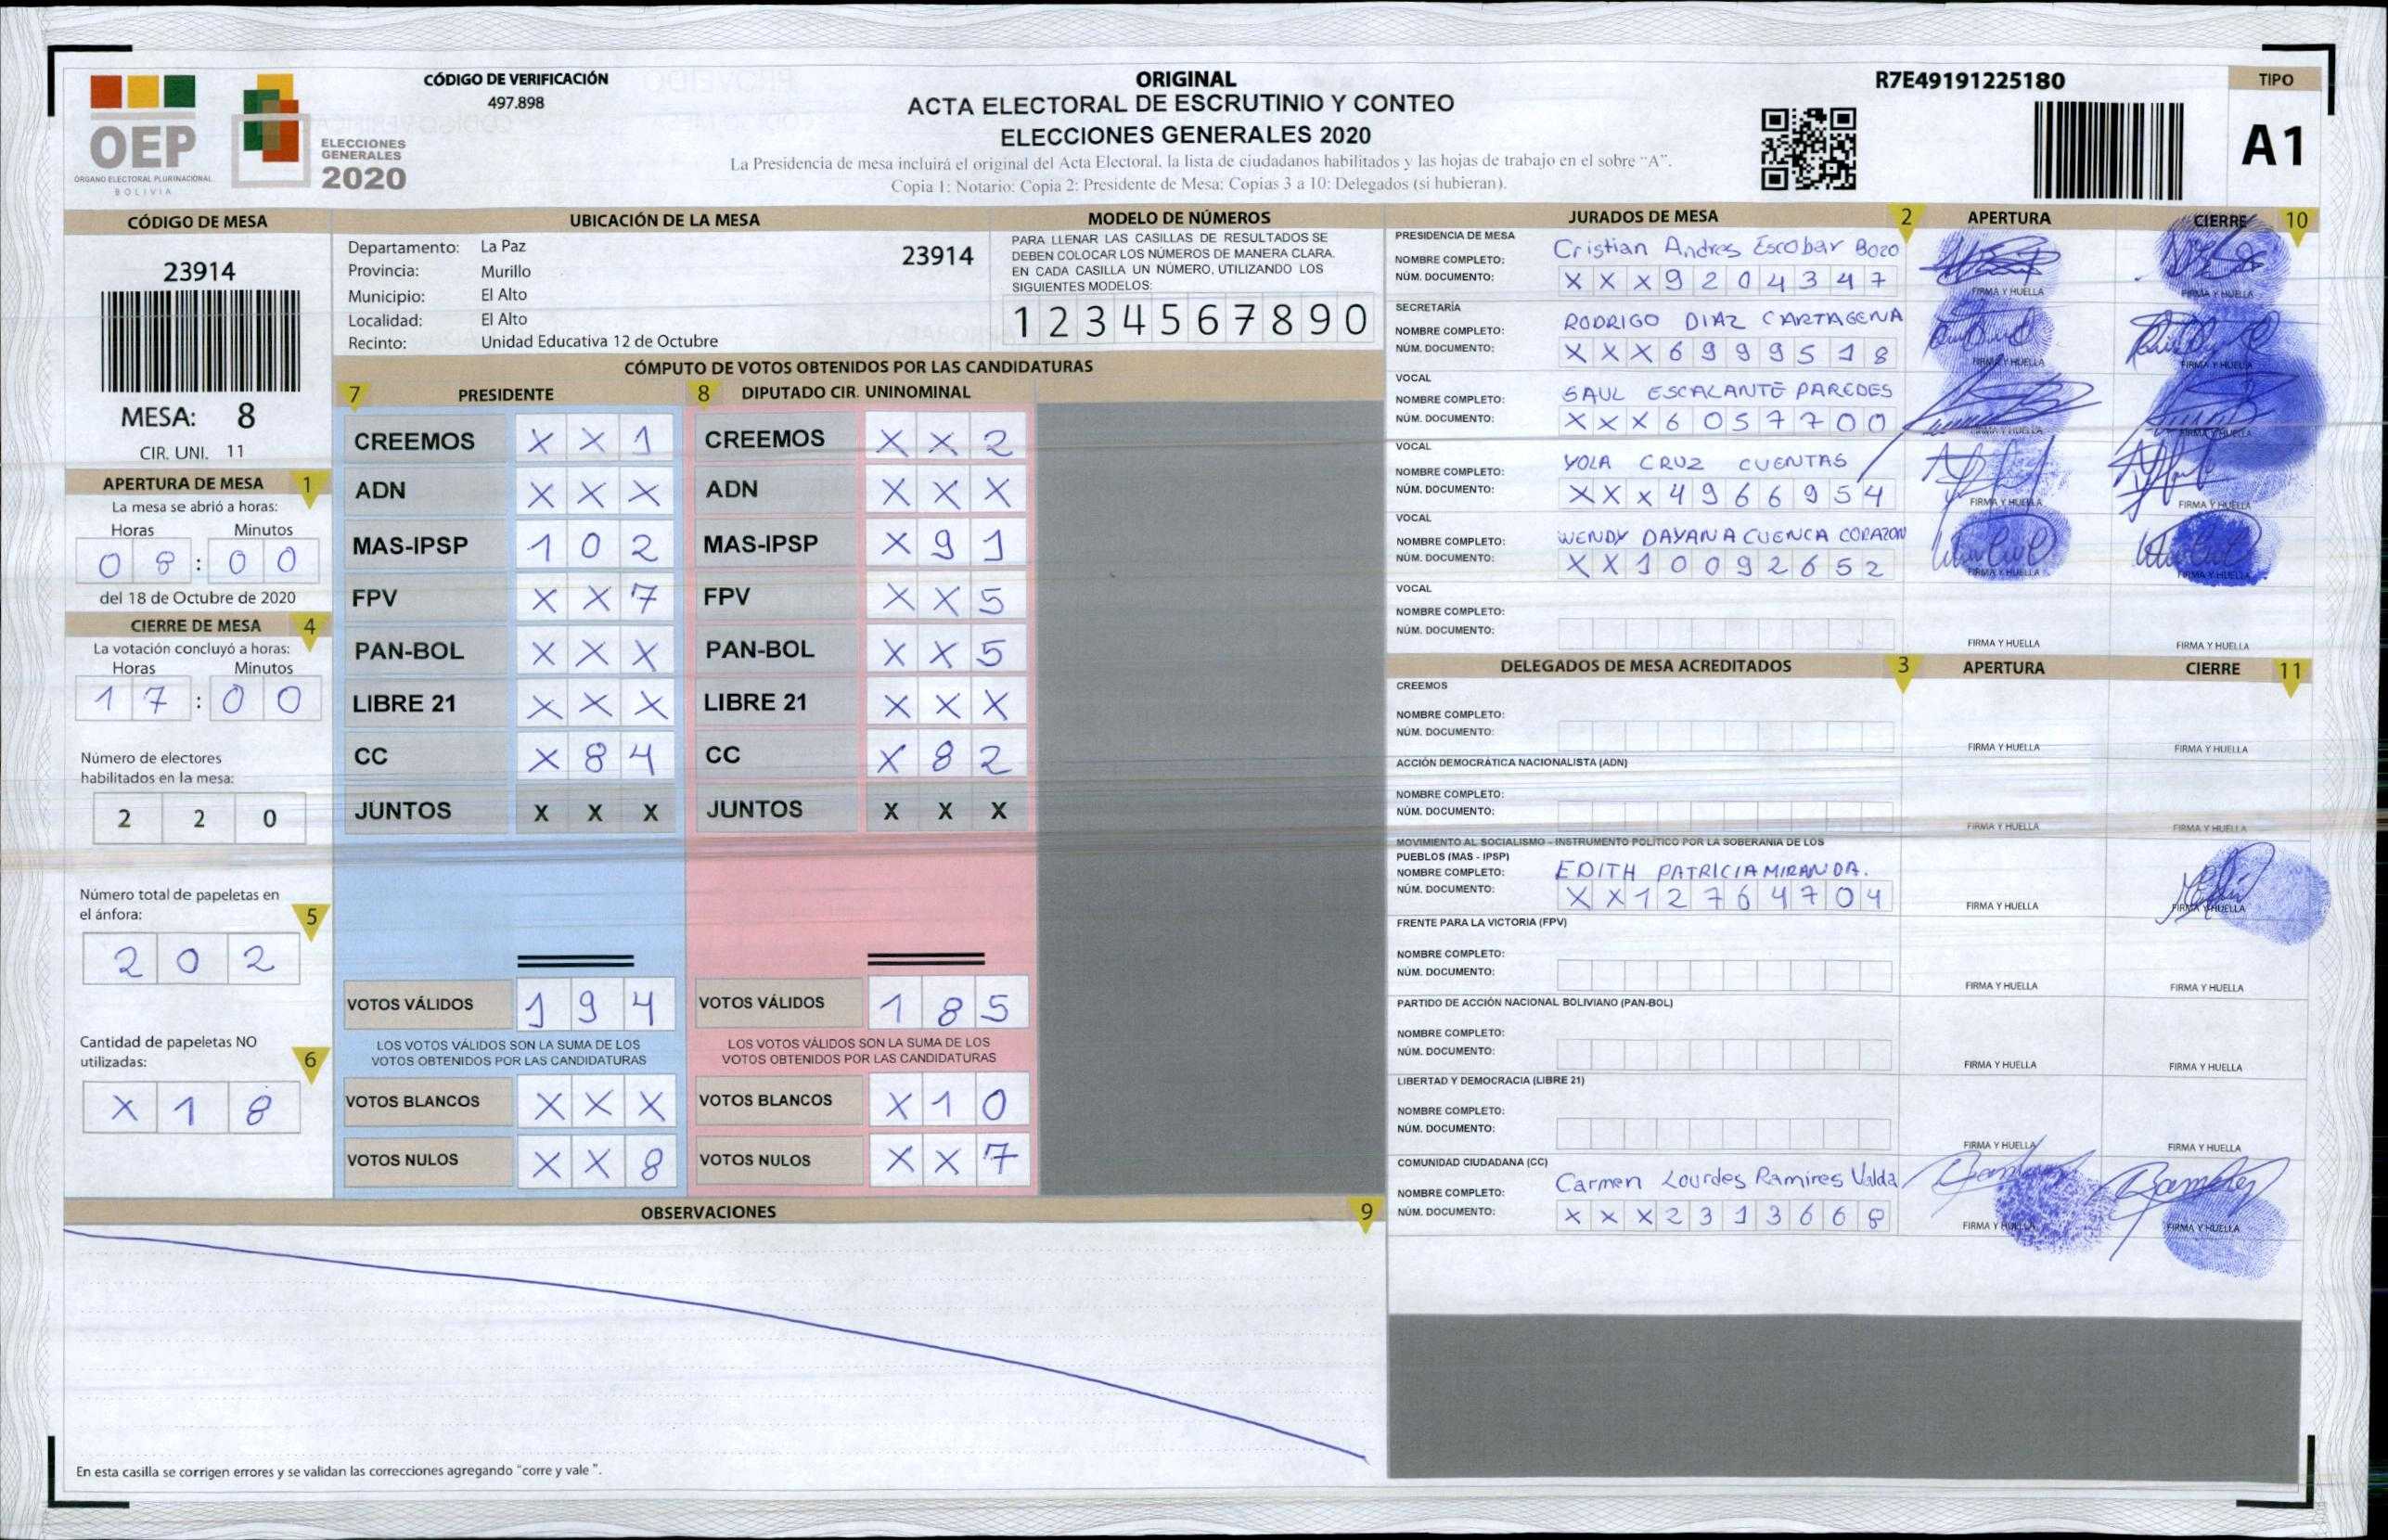 OEP
ÓRGANO ELECTORAL PLURINACIONAL
BOLIVIA
ELECCIONES
GENERALES
2020
CÓDIGO DE VERIFICACIÓN
497.898
ORIGINAL
ACTA ELECTORAL DE ESCRUTINIO Y CONTEO
ELECCIONES GENERALES 2020
La Presidencia de mesa incluirá el original del Acta Electoral, la lista de ciudadanos habilitados y las hojas de trabajo en el sobre "A".
Copia 1: Notario: Copia 2: Presidente de Mesa: Copias 3 a 10: Delegados (si hubieran).
R7E49191225180
TIPO
A1
CÓDIGO DE MESA
23914
MESA: 8
CIR. UNI. 11
APERTURA DE MESA 1
La mesa se abrió a horas:
Horas Minutos
08:00
del 18 de Octubre de 2020
CIERRE DE MESA 4
La votación concluyó a horas:
Horas Minutos
17:00
Número de electores
habilitados en la mesa:
2 2 0
Número total de papeletas en
el ánfora: 5
2 0 2
Cantidad de papeletas NO
utilizadas: 6
X 1 8
UBICACIÓN DE LA MESA
Departamento: La Paz 23914
Provincia: Murillo
Municipio: El Alto
Localidad: El Alto
Recinto: Unidad Educativa 12 de Octubre
MODELO DE NÚMEROS
PARA LLENAR LAS CASILLAS DE RESULTADOS SE
DEBEN COLOCAR LOS NÚMEROS DE MANERA CLARA.
EN CADA CASILLA UN NÚMERO, UTILIZANDO LOS
SIGUIENTES MODELOS:
1 2 3 4 5 6 7 8 9 0
CÓMPUTO DE VOTOS OBTENIDOS POR LAS CANDIDATURAS
7 PRESIDENTE 8 DIPUTADO CIR. UNINOMINAL
CREEMOS X X 1 CREEMOS X X 2
ADN X X X ADN X X X
MAS-IPSP 1 0 2 MAS-IPSP X 9 1
FPV X X 7 FPV X X 5
PAN-BOL X X X PAN-BOL X X 5
LIBRE 21 X X X LIBRE 21 X X X
CC X 8 4 CC X 8 2
JUNTOS X X X JUNTOS X X X
VOTOS VÁLIDOS 1 9 4 VOTOS VÁLIDOS 1 8 5
LOS VOTOS VÁLIDOS SON LA SUMA DE LOS LOS VOTOS VÁLIDOS SON LA SUMA DE LOS
VOTOS OBTENIDOS POR LAS CANDIDATURAS VOTOS OBTENIDOS POR LAS CANDIDATURAS
VOTOS BLANCOS X X X VOTOS BLANCOS X 1 0
VOTOS NULOS X X 8 VOTOS NULOS X X 7
OBSERVACIONES 9
En esta casilla se corrigen errores y se validan las correcciones agregando "corre y vale ".
JURADOS DE MESA 2 APERTURA CIERRE 10
PRESIDENCIA DE MESA
NOMBRE COMPLETO: Cristian Andres Escobar Bozo
NÚM. DOCUMENTO: X X X 9 2 0 4 3 4 7
FIRMA Y HUELLA FIRMA Y HUELLA
SECRETARÍA
NOMBRE COMPLETO: RODRIGO DIAZ CARTAGENA
NÚM. DOCUMENTO: X X X 6 9 9 9 5 1 8
FIRMA Y HUELLA FIRMA Y HUELLA
VOCAL
NOMBRE COMPLETO: SAUL ESCALANTE PAREDES
NÚM. DOCUMENTO: X X X 6 0 5 7 7 0 0
FIRMA Y HUELLA FIRMA Y HUELLA
VOCAL
NOMBRE COMPLETO: YOLA CRUZ CUENTAS
NÚM. DOCUMENTO: X X X 4 9 6 6 9 5 4
FIRMA Y HUELLA FIRMA Y HUELLA
VOCAL
NOMBRE COMPLETO: WENDY DAYANA CUENCA CORAZON
NÚM. DOCUMENTO: X X 1 0 0 9 2 6 5 2
FIRMA Y HUELLA FIRMA Y HUELLA
VOCAL
NOMBRE COMPLETO:
NÚM. DOCUMENTO:
FIRMA Y HUELLA FIRMA Y HUELLA
DELEGADOS DE MESA ACREDITADOS 3 APERTURA CIERRE 11
CREEMOS
NOMBRE COMPLETO:
NÚM. DOCUMENTO:
FIRMA Y HUELLA FIRMA Y HUELLA
ACCIÓN DEMOCRÁTICA NACIONALISTA (ADN)
NOMBRE COMPLETO:
NÚM. DOCUMENTO:
FIRMA Y HUELLA FIRMA Y HUELLA
MOVIMIENTO AL SOCIALISMO - INSTRUMENTO POLÍTICO POR LA SOBERANIA DE LOS
PUEBLOS (MAS - IPSP)
NOMBRE COMPLETO: EDITH PATRICIA MIRANDA.
NÚM. DOCUMENTO: X X 1 2 7 6 4 7 0 4
FIRMA Y HUELLA FIRMA Y HUELLA
FRENTE PARA LA VICTORIA (FPV)
NOMBRE COMPLETO:
NÚM. DOCUMENTO:
FIRMA Y HUELLA FIRMA Y HUELLA
PARTIDO DE ACCIÓN NACIONAL BOLIVIANO (PAN-BOL)
NOMBRE COMPLETO:
NÚM. DOCUMENTO:
FIRMA Y HUELLA FIRMA Y HUELLA
LIBERTAD Y DEMOCRACIA (LIBRE 21)
NOMBRE COMPLETO:
NÚM. DOCUMENTO:
FIRMA Y HUELLA FIRMA Y HUELLA
COMUNIDAD CIUDADANA (CC)
NOMBRE COMPLETO: Carmen Lourdes Ramires Valda
NÚM. DOCUMENTO: X X X 2 3 1 3 6 6 8
FIRMA Y HUELLA FIRMA Y HUELLA